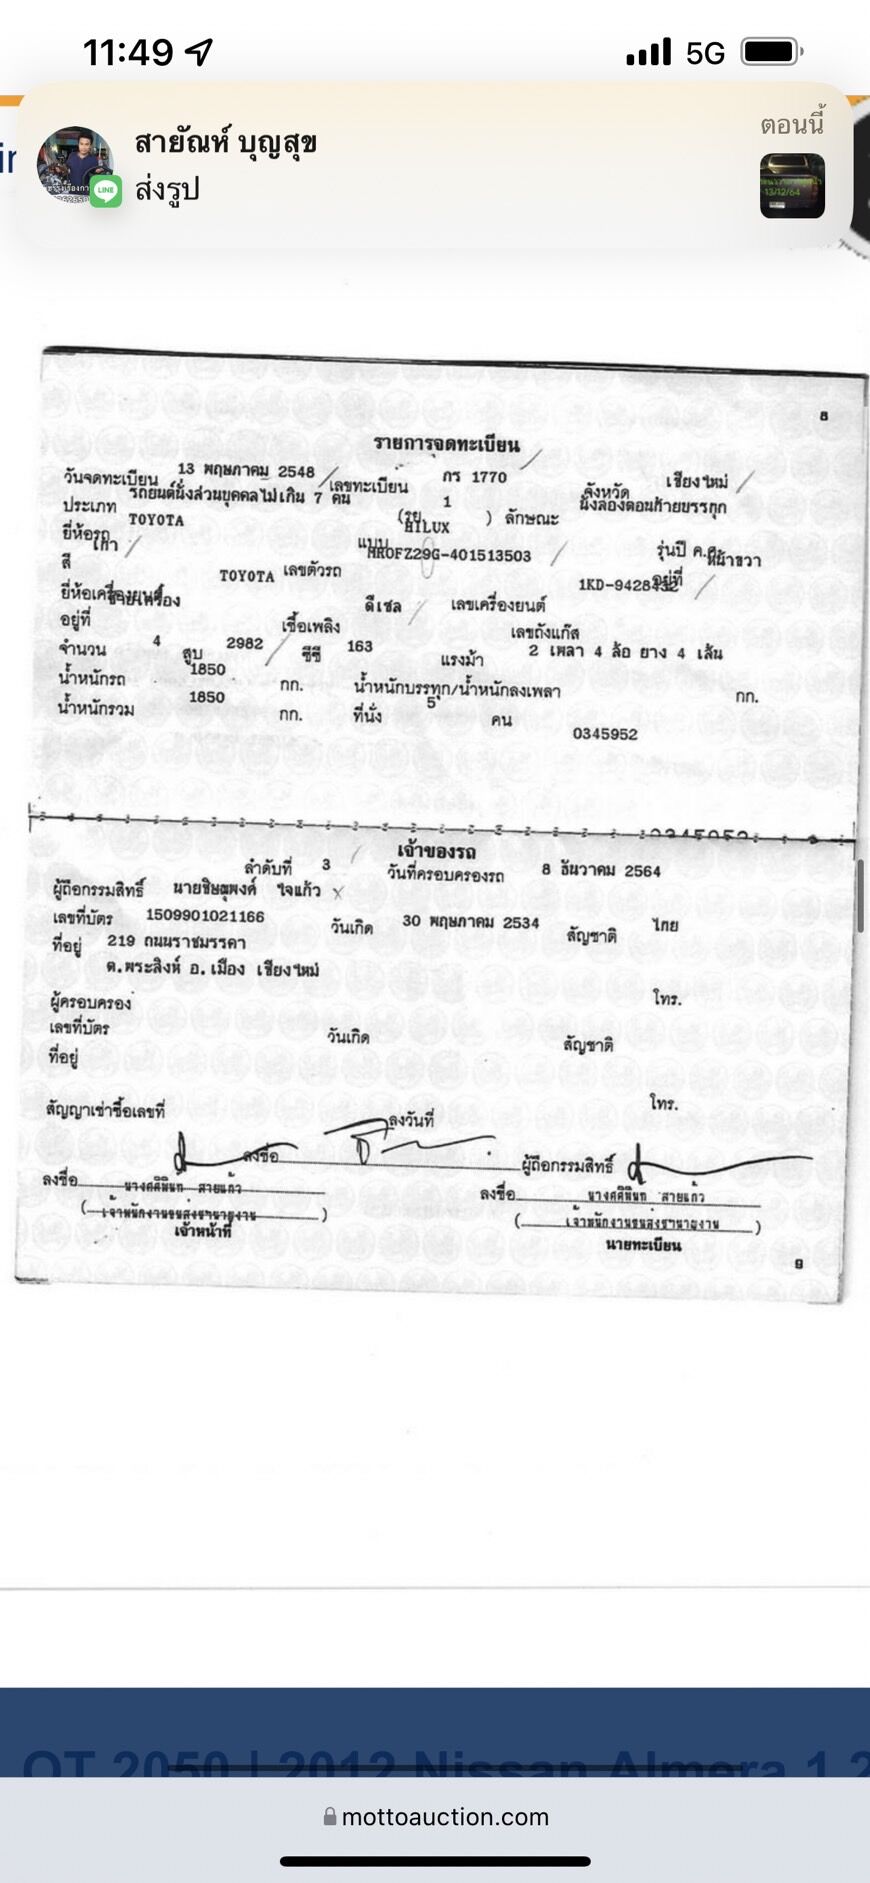 11:49
5G
สายัณห์ บุญสุข
ตอนนี้
ส่งรูป
LINE
13/12/64
8
รายการจดทะเบียน
วันจดทะเบียน 13 พฤษภาคม 2548 เลขทะเบียน กร 1770 จังหวัด เชียงใหม่
ประเภท รถยนต์นั่งส่วนบุคคลไม่เกิน 7 คน (รย. 1 ) ลักษณะ นั่งสองตอนท้ายบรรทุก
ยี่ห้อรถ TOYOTA แบบ HILUX รุ่นปี ค.ศ.
สี เทา เลขตัวรถ MR0FZ29G-401513503 อยู่ที่ หน้าขวา
ยี่ห้อเครื่องยนต์ TOYOTA เลขเครื่องยนต์ 1KD-9428432
อยู่ที่ เชื้อเพลิง ดีเซล เลขถังแก๊ส
จำนวน 4 สูบ 2982 ซีซี 163 แรงม้า 2 เพลา 4 ล้อ ยาง 4 เส้น
น้ำหนักรถ 1850 กก. น้ำหนักบรรทุก/น้ำหนักลงเพลา กก.
น้ำหนักรวม 1850 กก. ที่นั่ง 5 คน
0345952
เจ้าของรถ
ลำดับที่ 3 วันที่ครอบครองรถ 8 ธันวาคม 2564
ผู้ถือกรรมสิทธิ์ ใจแก้ว
เลขที่บัตร 1509901021166 วันเกิด 30 พฤษภาคม 2534 สัญชาติ ไทย
ที่อยู่ 219 ถนนราชมรรคา
ต.พระสิงห์ อ.เมือง เชียงใหม่
โทร.
ผู้ครอบครอง
เลขที่บัตร วันเกิด สัญชาติ
ที่อยู่
โทร.
สัญญาเช่าซื้อเลขที่ ลงวันที่
ลงชื่อ ผู้ถือกรรมสิทธิ์
ลงชื่อ สายแก้ว ลงชื่อ สายแก้ว
(เจ้าพนักงานขนส่งชำนาญงาน) (เจ้าพนักงานขนส่งชำนาญงาน)
เจ้าหน้าที่ นายทะเบียน
9
OT 2050 | 2012 Nissan Almera 1.2
mottoauction.com